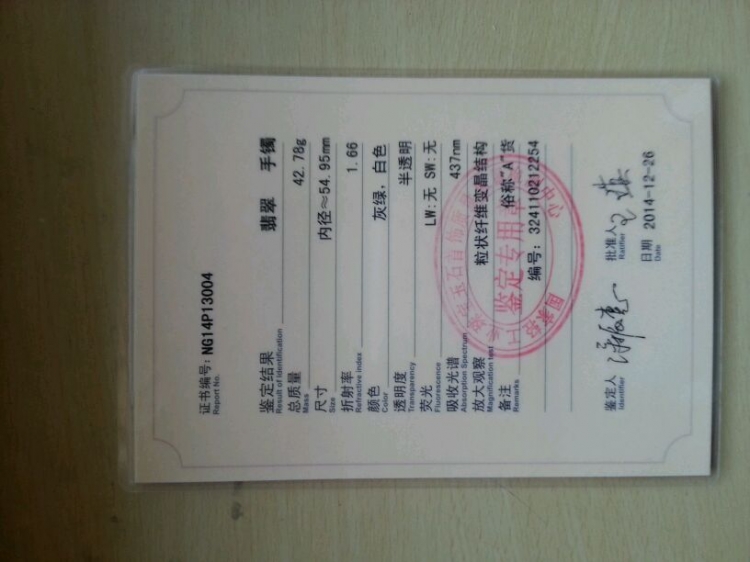 证书编号: NG14P13004
Report No.
鉴定结果 翡翠 手镯
Result of Identification
总质量 42.78g
Mass
尺寸 内径≈54.95mm
Size
折射率 1.66
Refractive index
颜色 灰绿, 白色
Color
透明度 半透明
Transparency
荧光 LW:无 SW:无
Fluorescence
吸收光谱 437nm
Absorption Spectrum
放大观察 粒状纤维变晶结构
Magnification test
备注 俗称"A"货
Remarks
编号: 3241102212254
鉴定专用章
鉴定人 批准人
Identifier Ratifier
日期 2014-12-26
Date